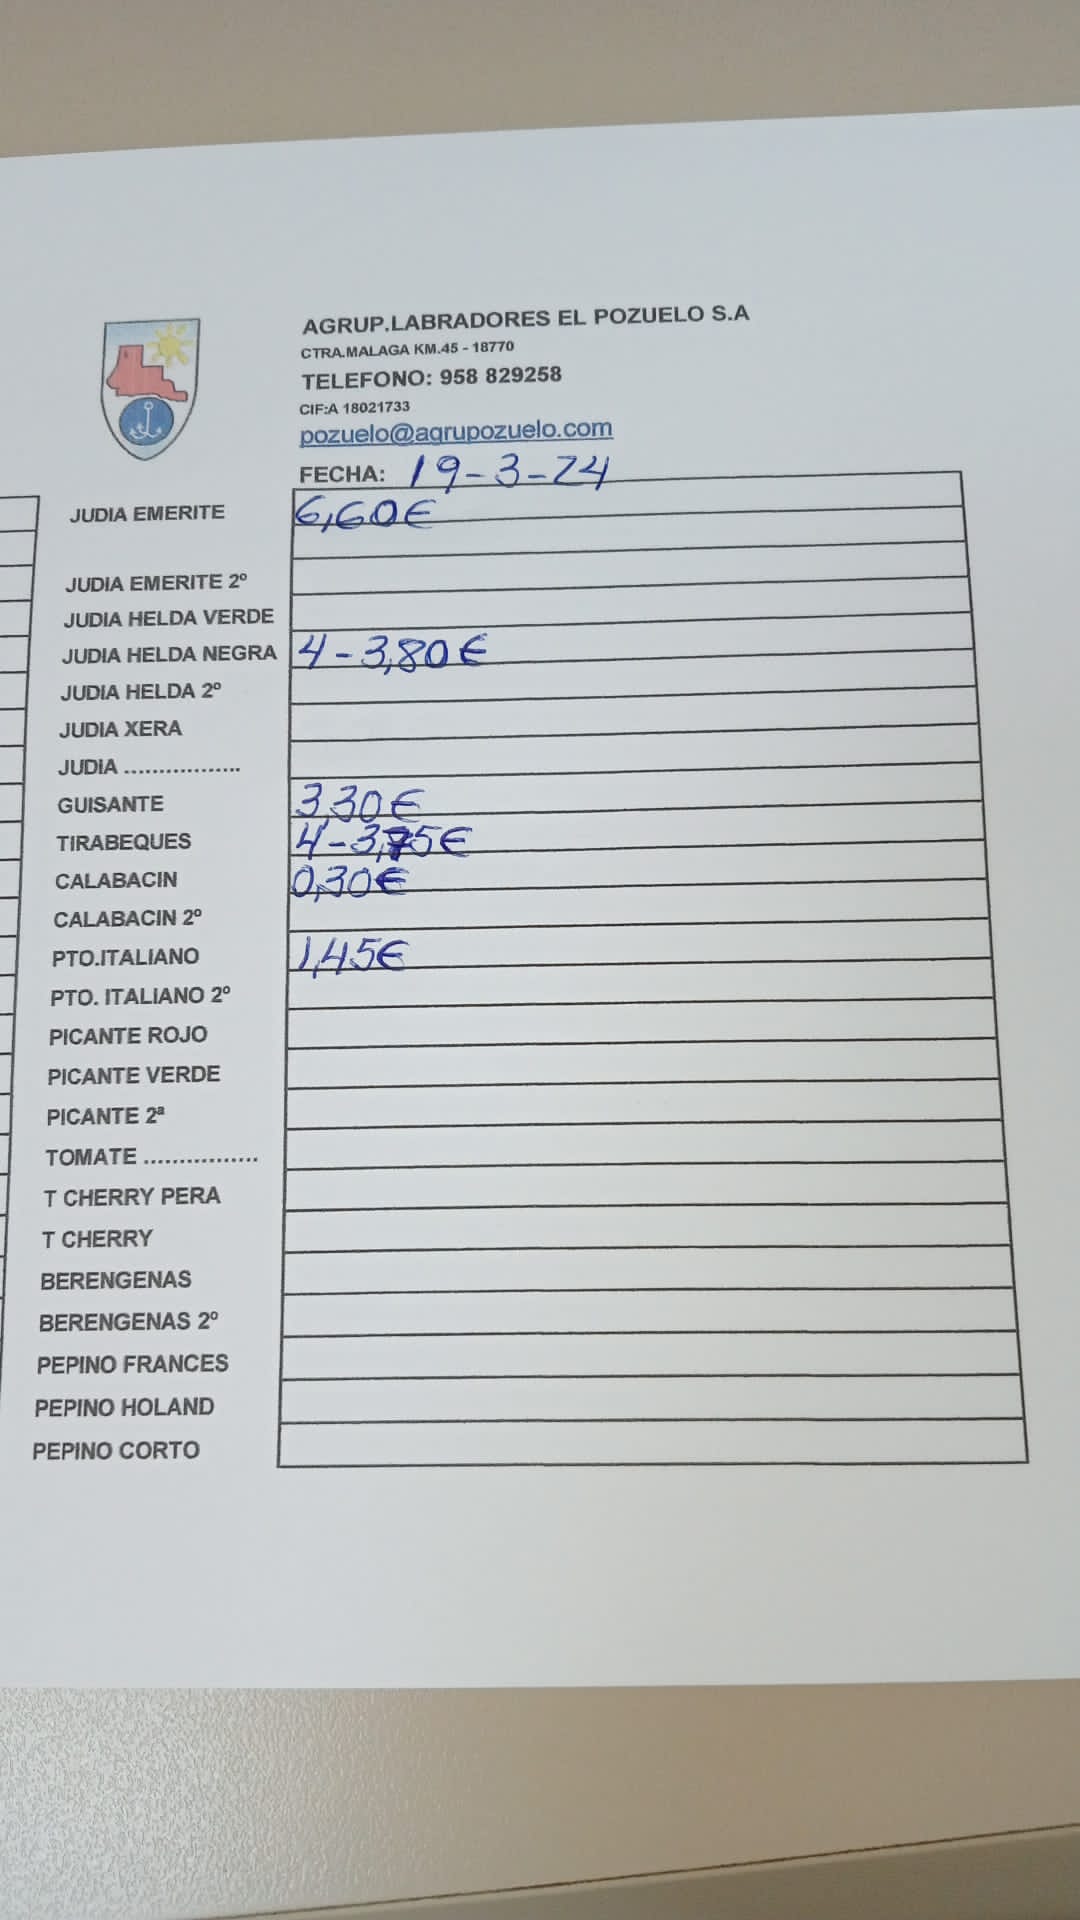 AGRUP.LABRADORES EL POZUELO S.A
CTRA.MALAGA KM.45 - 18770
TELEFONO: 958 829258
CIF:A 18021733
pozuelo@agrupozuelo.com
FECHA: 19-3-24
JUDIA EMERITE 6,60€
JUDIA EMERITE 2º
JUDIA HELDA VERDE
JUDIA HELDA NEGRA 4-3,80€
JUDIA HELDA 2º
JUDIA XERA
JUDIA .................
GUISANTE 3,30€
TIRABEQUES 4-3,75€
CALABACIN 0,30€
CALABACIN 2º
PTO.ITALIANO 1,45€
PTO. ITALIANO 2º
PICANTE ROJO
PICANTE VERDE
PICANTE 2ª
TOMATE ................
T CHERRY PERA
T CHERRY
BERENGENAS
BERENGENAS 2º
PEPINO FRANCES
PEPINO HOLAND
PEPINO CORTO